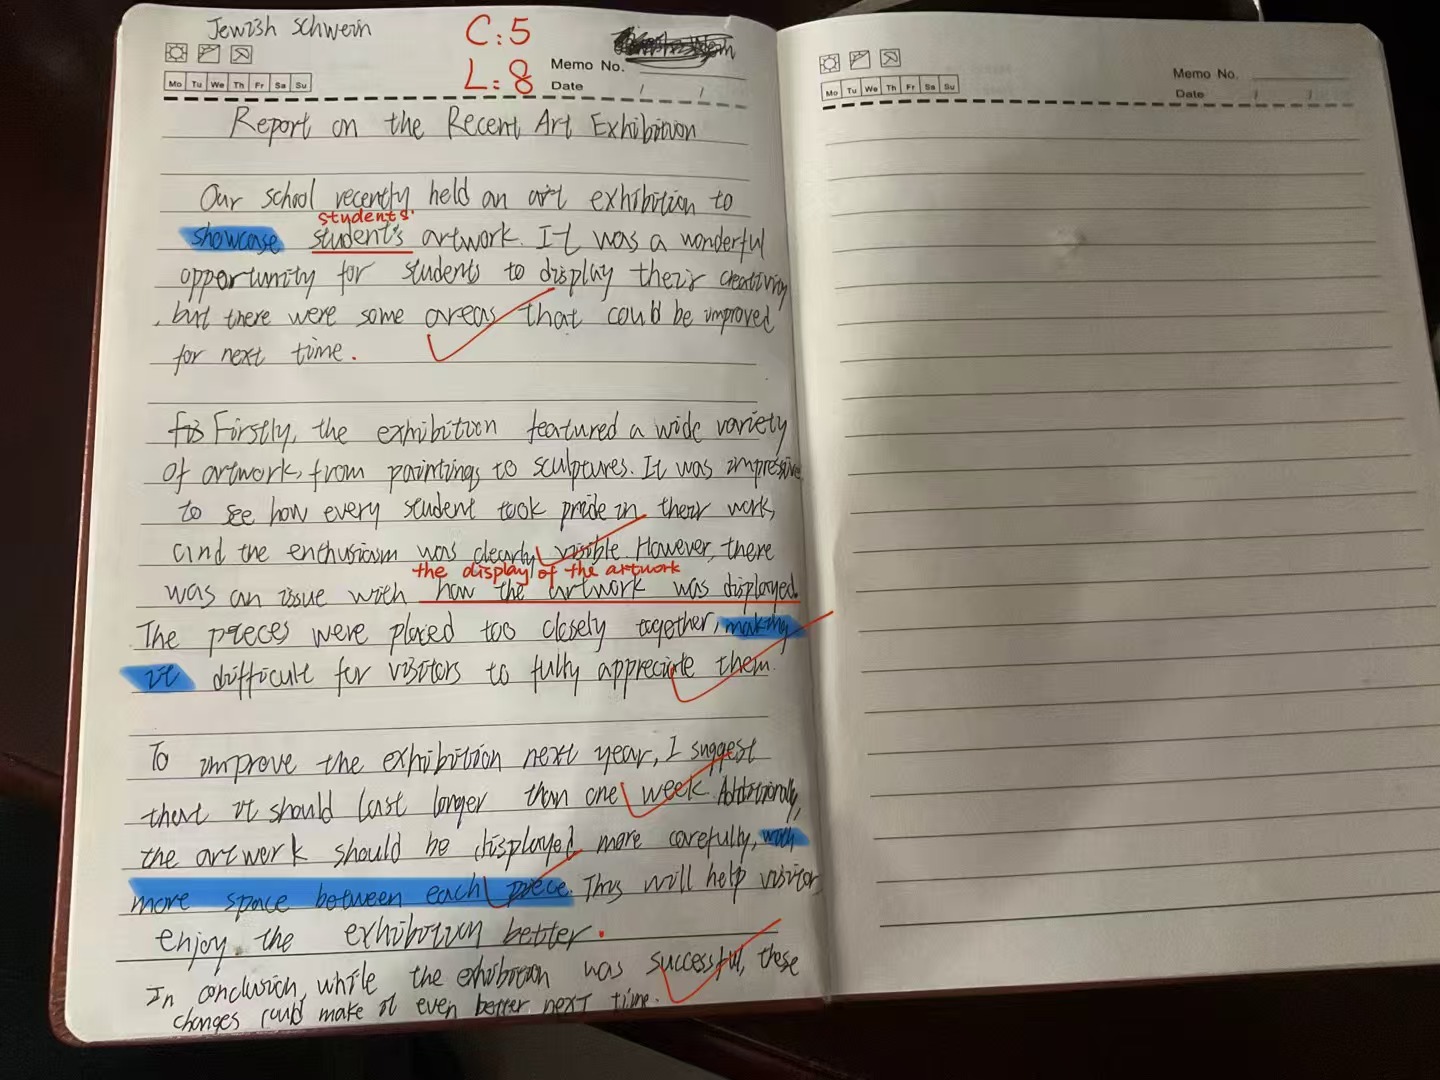 Jewish schwein
C:5
L:8
Memo No.
Date / /
Mo Tu We Th Fr Sa Su
Report on the Recent Art Exhibition
Our school recently held an art exhibition to
students'
showcase student's artwork. It was a wonderful
opportunity for students to display their creativity
, but there were some areas that could be improved
for next time.
Firstly, the exhibition featured a wide variety
of artwork, from paintings to sculptures. It was impressive
to see how every student took pride in their work,
and the enthusiasm was clearly visible. However, there
the display of the artwork
was an issue with how the artwork was displayed.
The pieces were placed too closely together, making
it difficult for visitors to fully appreciate them.
To improve the exhibition next year, I suggest
that it should last longer than one week. Additionally,
the artwork should be displayed more carefully, with
more space between each piece. This will help visitor
enjoy the exhibition better.
In conclusion, while the exhibition was successful, these
changes could make it even better next time.
Memo No.
Date / /
Mo Tu We Th Fr Sa Su